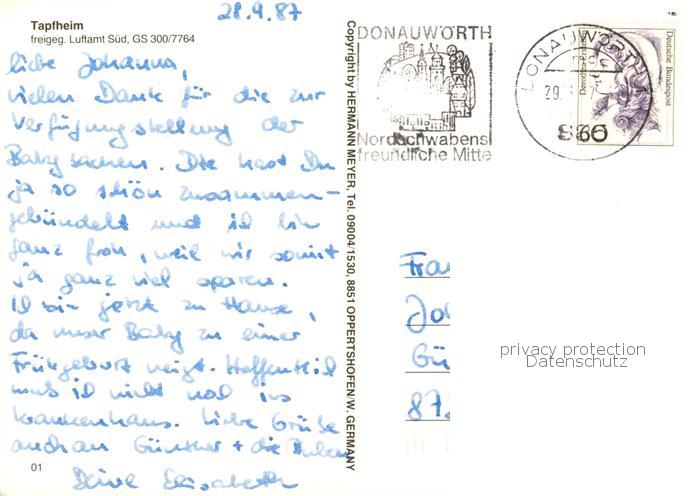 28.9.87
Tapfheim
freigeg. Luftamt Süd, GS 300/7764
liebe Johanna,
vielen Dank für die zur
Verfügungstellung der
Babysachen. Die hast Du
ja so schön zusammen-
gebündelt und ich bin
ganz froh, weil wir somit
ja ganz viel sparen.
Ich bin jetzt zu Hause,
da unser Baby zu einer
Frühgeburt neigt. Hoffentlich
muß ich nicht noch ins
Krankenhaus. Liebe Grüße
auch an Günther + die Buben
Deine Elisabeth
01
Copyright by HERMANN MEYER, Tel. 09004/1530, 8851 OPPERTSHOFEN/W. GERMANY
DONAUWÖRTH
Nordschwabens
freundliche Mitte
DONAUWÖRTH
29.
Deutsche Bundespost
Frau
Jo
Gü
87
privacy protection
Datenschutz